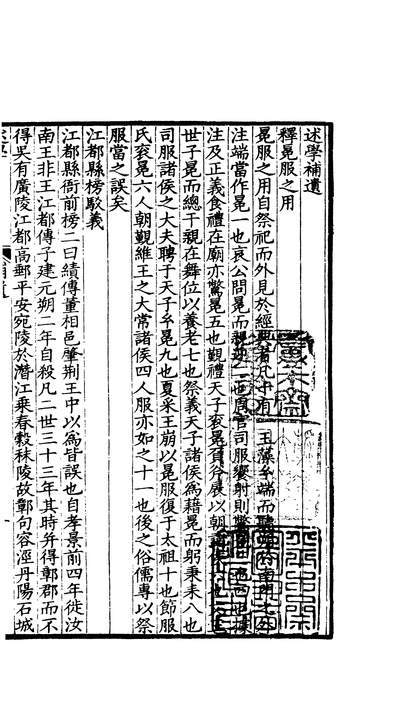 述學補遺
釋冕服之用
冕服之用自祭祀而外見於經典者凡十有一玉藻玄端而聽朔於南門之外
注端當作冕一也哀公問冕而親迎二也夏官司服饗射則鷩冕三也四也據
注及正義食禮在廟亦鷩冕五也覲禮天子袞冕負斧展以朝
世子冕而總干親在舞位以養老七也祭義天子諸侯為藉冕而躬秉耒八也
司服諸侯之大夫聘于天子玄冕九也夏采王崩以冕服復于太祖十也節服
氏袞冕六人朝覲維王之大常諸侯四人服亦如之十一也後之俗儒專以祭
服當之誤矣
江都縣榜駮義
江都縣衙前榜二曰績傳董相邑肇荆王中以為皆誤也自孝景前四年徙汝
南王非王江都傳子建元朔二年自殺凡二世三十三年其時并得鄣郡而不
得吳有廣陵江都高郵平安宛陵於潛江乘春穀秣陵故鄣句容涇丹陽石城